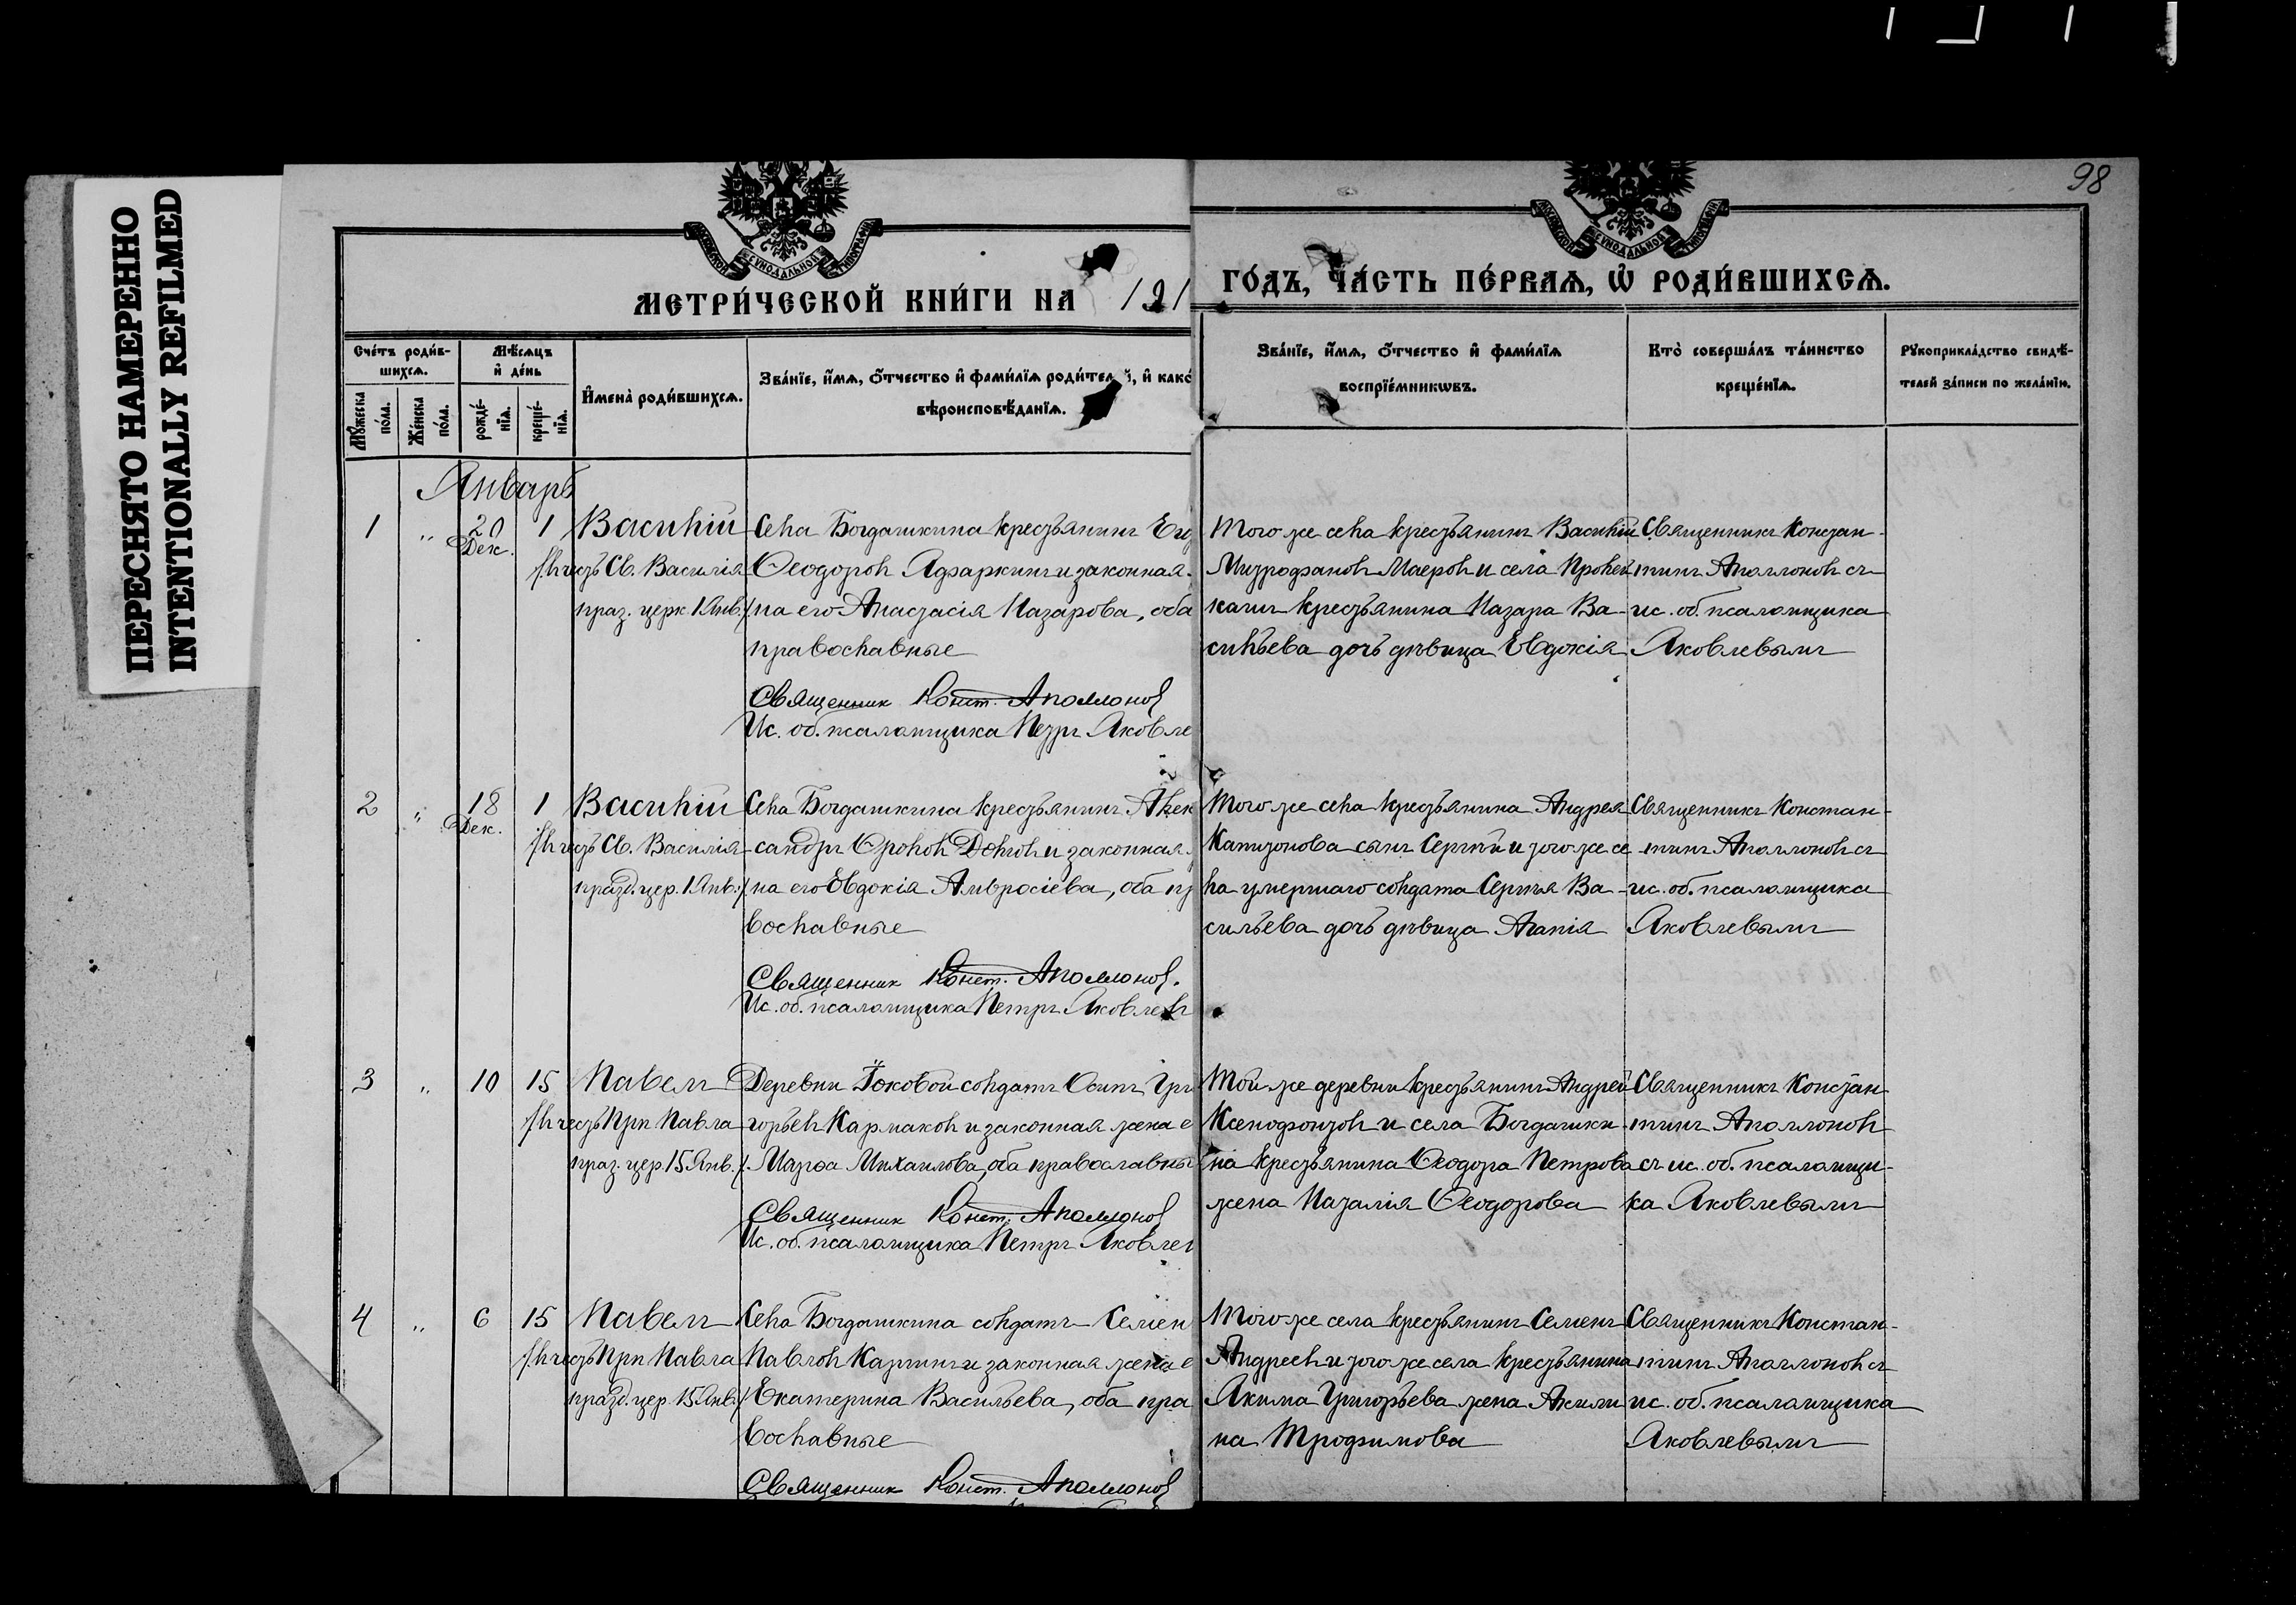 ПЕРЕСНЯТО НАМЕРЕННО
INTENTIONALLY REFILMED
98
МОСКОВСКОЙ СѴНОДАЛЬНОЙ ТИПОГРАФІИ
МОСКОВСКОЙ СѴНОДАЛЬНОЙ ТИПОГРАФІИ
МЕТРИ́ЧЕСКОЙ КНИ́ГИ НА 191
ГО́ДЪ, ЧА́СТЬ ПЕ́РВАѦ, Ѿ РОДИ́ВШИХСѦ.
Сче́тъ роди́в-
шихсѧ.
Мѣ́сѧцъ
и де́нь
Мꙋ́жеска
по́ла.
Же́нска
по́ла.
рожде́-
нїѧ.
креще́-
нїѧ.
И҆мена̀ роди́вшихсѧ.
Зва́нїе, и҆́мѧ, ѻ҆́тчество и҆ фами́лїѧ роди́телей, и҆ како́
вѣроисповѣ́данїѧ.
Зва́нїе, и҆́мѧ, ѻ҆́тчество и҆ фами́лїѧ
воспрїе́мникѡвъ.
Кто̀ соверша́лъ та́инство
креще́нїѧ.
Рꙋкоприкла́дство свидѣ́-
телей за́писи по жела́нїю.
Январь
1 „ 20 Дек. 1 Василій
/въ честь Св. Василія
праз. церк. 1 Янв./
Села Богдашкина крестьянинъ Ег
Ѳеодоровъ Адфаркинъ и законная
на его Анастасія Назарова, оба
православные
Священник Конст. Аполлонов
Ис. об. псаломщика Петръ Яковле
Того же села крестьянинъ Василій
Митрофановъ Маеровъ и села
крестьянина Назара Ва-
сильева дочь дѣвица Евдокія
Священникъ Констан-
тинъ Аполлоновъ съ
ис. об. псаломщика
Яковлевымъ
2 „ 18 Дек. 1 Василій
/въ честь Св. Василія
празд. цер. 1 Янв./
Села Богдашкина крестьянинъ Алек
сандръ Фроловъ Долговъ и законная
на его Евдокія Амвросіева, оба пр
вославные
Священник Конст. Аполлонов.
Ис. об. псаломщика Петръ Яковлевъ
Того же села крестьянина Андрея
Капитонова сынъ Сергѣй и того же се
ла умершаго солдата Сергѣя Ва-
сильева дочь дѣвица Агапія
Священникъ Констан-
тинъ Аполлоновъ съ
ис. об. псаломщика
Яковлевымъ
3 „ 10 15 Павелъ
/въ честь Прп Павла
праз. цер. 15 Янв./
Деревни Ӏоковой солдатъ Осипъ Гри
горьевъ Кармаковъ и законная жена е
Марѳа Михаилова, оба православны
Священник Конст. Аполлонов
Ис. об. псаломщика Петръ Яковлев
Той же деревни крестьянинъ Андрей
Ксенофонтовъ и села Богдашки-
на крестьянина Ѳеодора Петрова
жена Наталія Ѳеодорова
Священникъ Констан
тинъ Аполлоновъ
съ ис. об. псаломщи-
ка Яковлевымъ
4 „ 6 15 Павелъ
/въ честь Прп Павла
празд. цер. 15 Янв./
Села Богдашкина солдатъ Семен
Павловъ Каргинъ и законная жена е
Екатерина Васильева, оба пра
вославные
Священник Конст. Аполлонов
Того же села крестьянинъ Семенъ
Андреевъ и того же села крестьянина
Акима Григорьева жена Акили
на Трофимова
Священникъ Констан-
тинъ Аполлоновъ съ
ис. об. псаломщика
Яковлевымъ